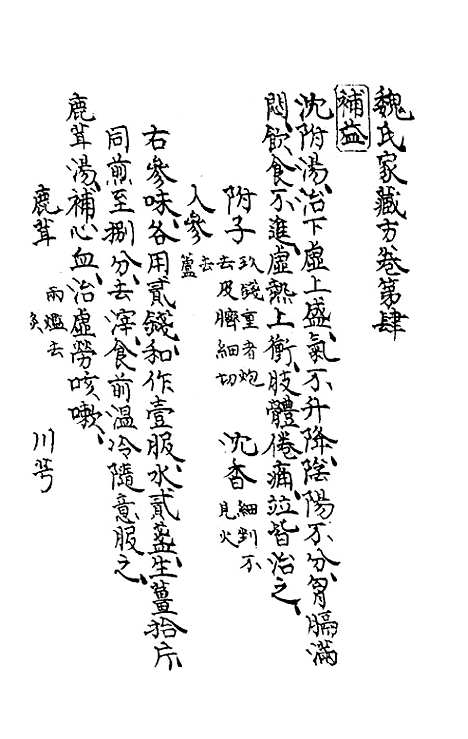 魏氏家藏方卷第肆
補益
沈附湯治下虛上盛氣不升降陰陽不分胷膈滿
悶飲食不進虛熱上衝肢體倦痛竝皆治之
附子 玖錢重者炮去皮臍細切 沈香 細剉不見火
人參 去蘆
右參味各用貳錢和作壹服水貳盞生薑拾片
同煎至捌分去滓食前溫冷隨意服之
鹿茸湯補心血治虛勞咳嗽
鹿茸 兩燎去 川芎